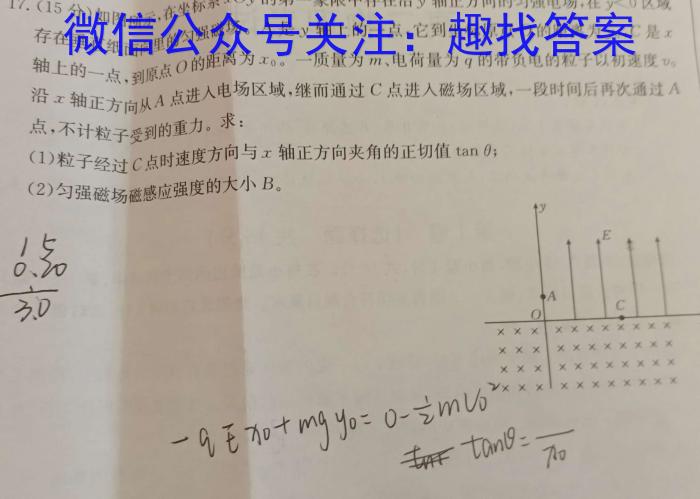 微信公众号关注：趣找答案
17.(15分)如图所示,在坐标系xOy的第一象限中存在沿y轴正方向的匀强电场,在y<0区域
存在垂直纸面向里的匀强磁场 y轴上的一点,它到 C是x
轴上的一点,到原点O的距离为x₀。一质量为m、电荷量为q的带负电的粒子以初速度v₀
沿x轴正方向从A点进入电场区域,继而通过C点进入磁场区域,一段时间后再次通过A
点,不计粒子受到的重力。求:
(1)粒子经过C点时速度方向与x轴正方向夹角的正切值tan θ;
(2)匀强磁场磁感应强度的大小B。
15
0.20
3.0
y
E
A
O
C
× × × × × × × × × × × ×
× × × × × × × × × × × ×
× × × × × × × × × × × ×
× × × × × × × × × × × ×
-qEx₀+mgy₀=0-½mv₀²
tanθ=—/x₀